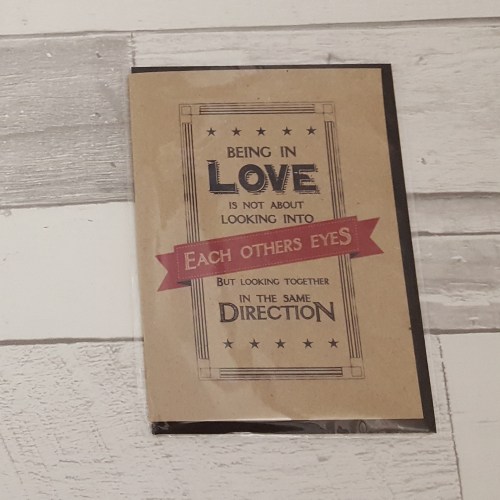 BEING IN
LOVE
IS NOT ABOUT
LOOKING INTO
EACH OTHERS EYES
BUT LOOKING TOGETHER
IN THE SAME
DIRECTION